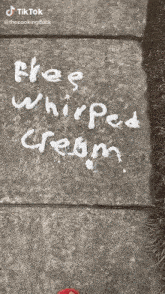 TikTok
@cheesekingduck
Free
Whirped
cream.